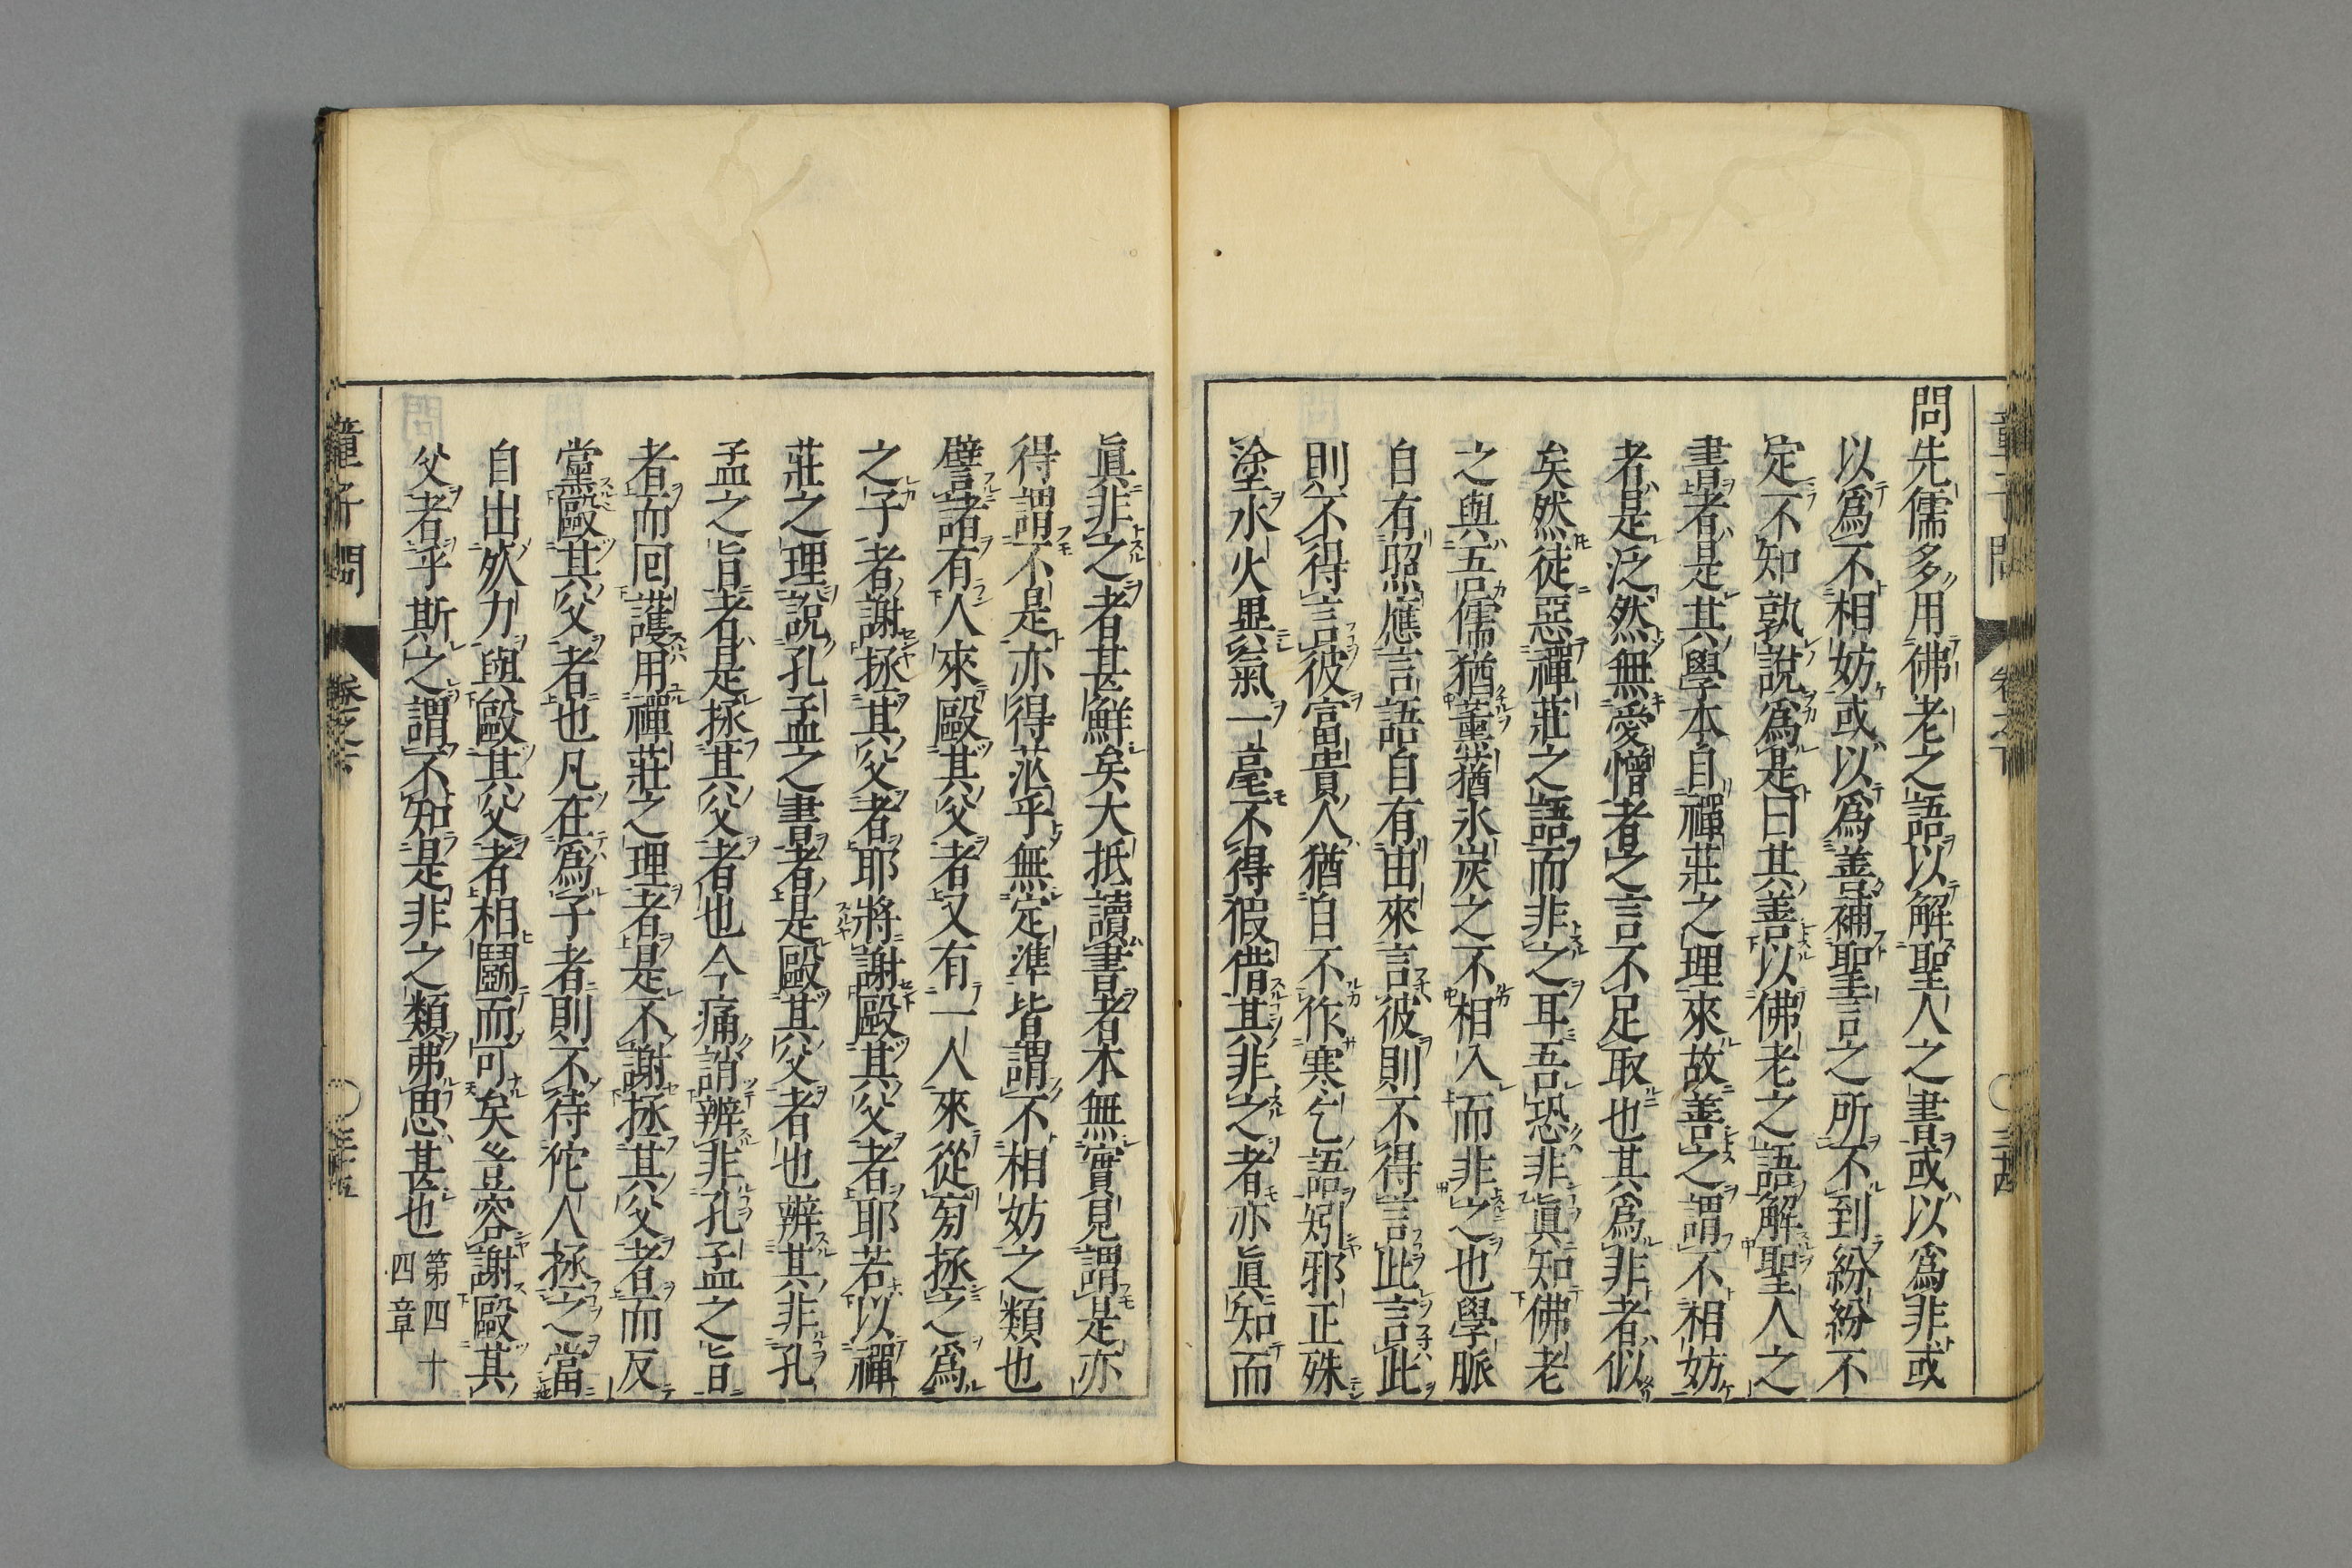 問先儒多用佛老之語以解聖人之書或以爲非或
以爲不相妨或以爲善補聖言之所不到紛紛不
定不知孰說爲是曰其善以佛老之語解聖人之
書者是其學本自禪莊之理來故善之謂不相妨
者是泛然無愛憎者之言不足取也其爲非者似
矣然徒惡禪莊之語而非之耳吾恐非眞知佛老
之與吾儒猶薰蕕氷炭之不相入而非之也學脈
自有照應言語自有由來言彼則不得言此言此
則不得言彼富貴人猶自不作寒乞語矧邪正殊
塗水火異氣一毫不得假借其非之者亦眞知而
眞非之者甚鮮矣大抵讀書者本無實見謂是亦
得謂不是亦得茫乎無定準皆謂不相妨之類也
譬諸有人來毆其父者又有一人來從旁拯之爲
之子者謝拯其父者耶將謝毆其父者耶若以禪
莊之理說孔孟之書者是毆其父者也辨其非孔
孟之旨者是拯其父者也今痛誚辨非孔孟之旨
者而回護用禪莊之理者是不謝拯其父者而反
黨毆其父者也凡在爲子者則不待佗人拯之當
自出死力與毆其父者相鬪而可矣豈容謝毆其
父者乎斯之謂不知是非之類弗思甚也 第四十四章
童子問 卷之下 三十四
童子問 卷之下 三十五